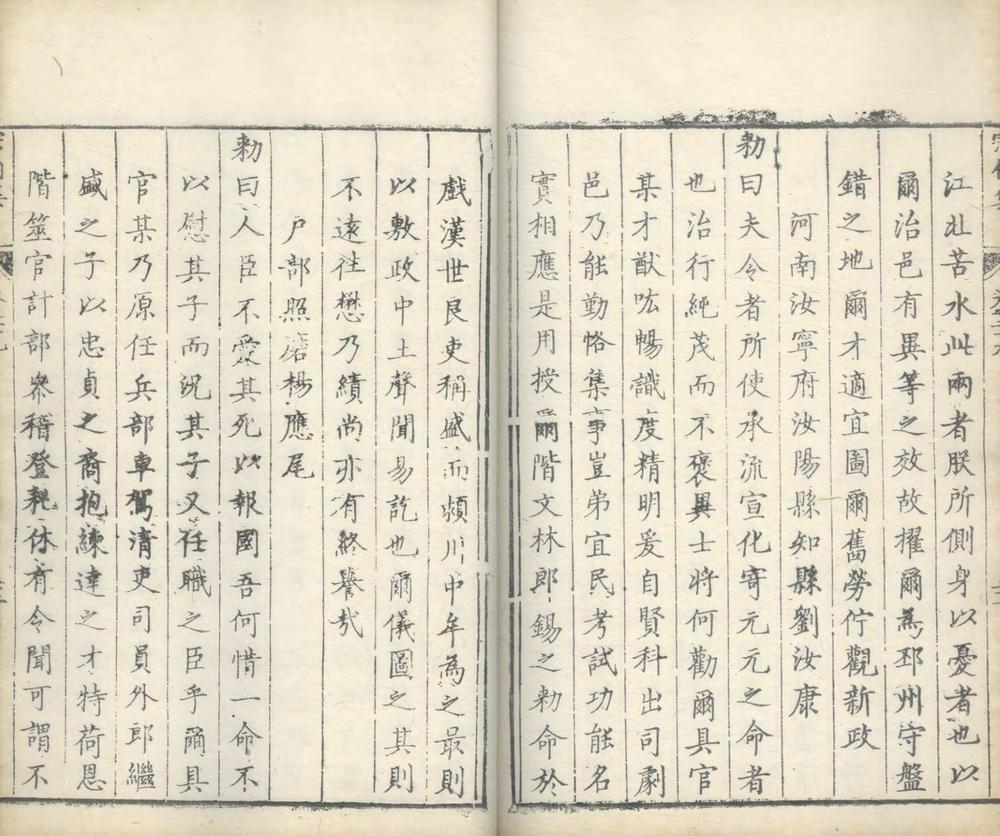 江北苦水此兩者朕所側身以憂者也以
爾治邑有異等之效故擢爾為邳州守盤
錯之地爾才適宜圖爾舊勞佇觀新政
河南汝寧府汝陽縣知縣劉汝康
勅曰夫令者所使承流宣化寄元元之命者
也治行純茂而不褒異士將何勸爾具官
某才猷吰暢識度精明爰自賢科出司劇
邑乃能勤恪集事豈弟宜民考試功能名
實相應是用授爾階文林郎錫之勅命於
戲漢世良吏稱盛而潁川中牟為之最則
以敷政中土聲聞易訖也爾儀圖之其則
不遠往懋乃績尚亦有終譽哉
戶部照磨楊應尾
勅曰人臣不愛其死以報國吾何惜一命不
以慰其子而況其子又任職之臣乎爾具
官某乃原任兵部車駕清吏司員外郎繼
盛之子以忠貞之裔抱練達之才特荷恩
階筮官計部參稽登耗休有令聞可謂不